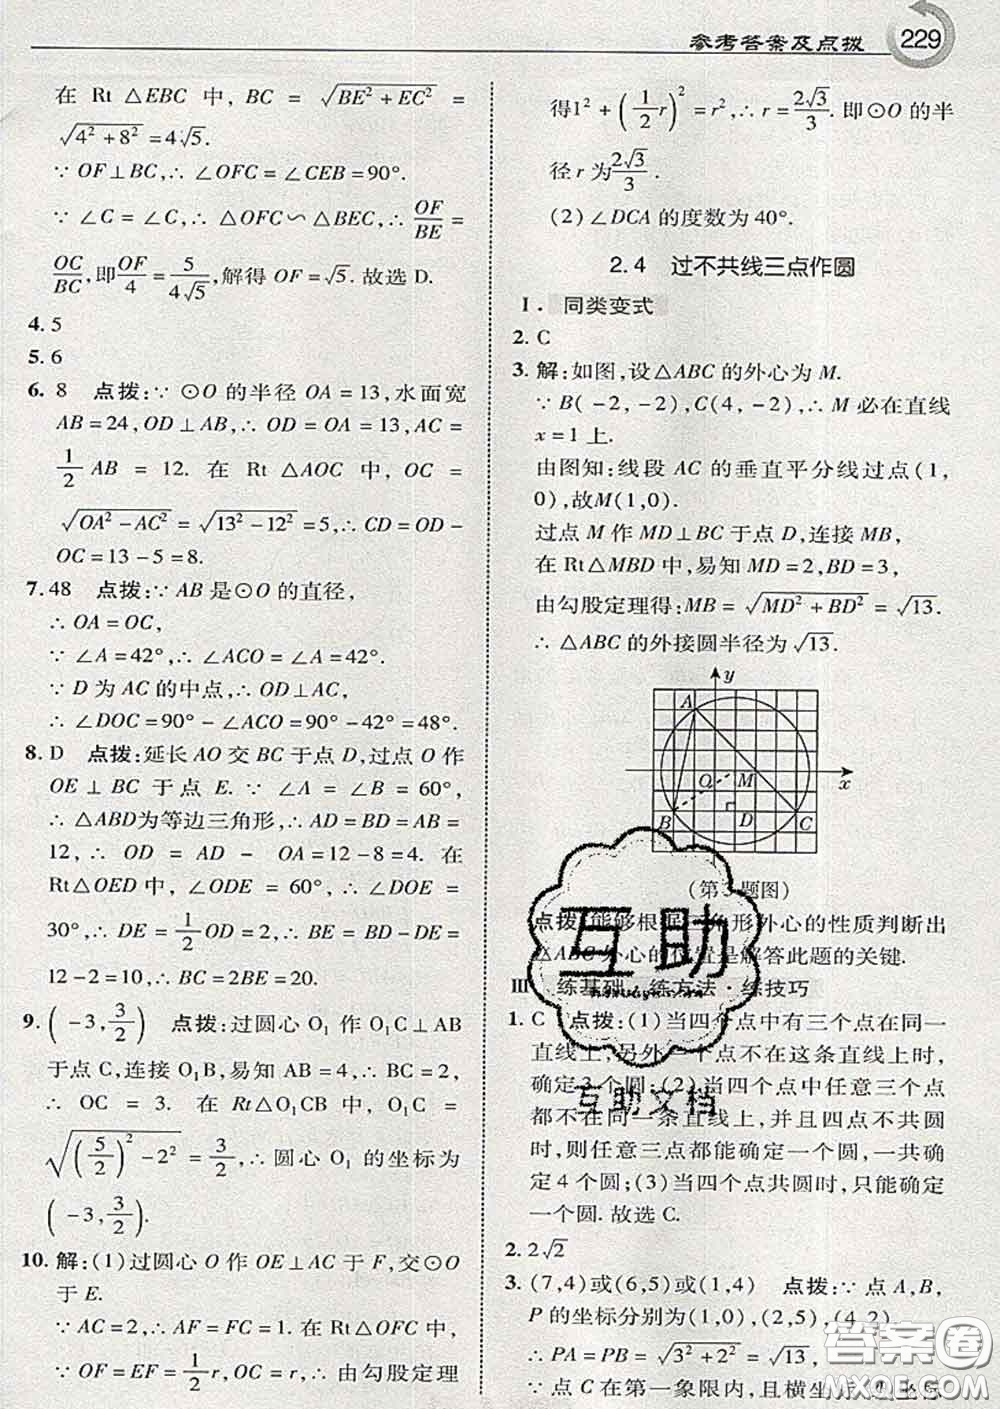 参考答案及点拨 229
在 Rt △EBC 中, BC = √(BE²+EC²) =
√(4²+8²) = 4√5.
∵ OF⊥BC,∴ ∠OFC = ∠CEB = 90°.
∵ ∠C = ∠C,∴ △OFC∽△BEC,∴ OF/BE =
OC/BC,即OF/4 = 5/(4√5),解得 OF = √5. 故选 D.
4. 5
5. 6
6. 8 点拨:∵ ⊙O 的半径 OA = 13,水面宽
AB = 24, OD⊥AB,∴ OD = OA = 13, AC =
1/2 AB = 12. 在 Rt △AOC 中, OC =
√(OA²-AC²) = √(13²-12²) = 5,∴ CD = OD -
OC = 13 - 5 = 8.
7. 48 点拨:∵ AB 是⊙O 的直径,
∴ OA = OC,
∵ ∠A = 42°,∴ ∠ACO = ∠A = 42°.
∵ D 为 AC 的中点,∴ OD⊥AC,
∴ ∠DOC = 90° - ∠ACO = 90° - 42° = 48°.
8. D 点拨:延长 AO 交 BC 于点 D,过点 O 作
OE⊥BC 于点 E. ∵ ∠A = ∠B = 60°,
∴ △ABD为等边三角形,∴ AD = BD = AB =
12,∴ OD = AD - OA = 12 - 8 = 4. 在
Rt△OED 中, ∠ODE = 60°,∴ ∠DOE =
30°,∴ DE = 1/2 OD = 2,∴ BE = BD - DE =
12 - 2 = 10,∴ BC = 2BE = 20.
9. (-3, 3/2) 点拨:过圆心 O₁ 作 O₁C⊥AB
于点 C,连接 O₁B,易知 AB = 4,∴ BC = 2,
∴ OC = 3. 在 Rt△O₁CB 中, O₁C =
√((5/2)²-2²) = 3/2,∴ 圆心 O₁ 的坐标为
(-3, 3/2).
10. 解:(1)过圆心 O 作 OE⊥AC 于 F,交⊙O
于 E.
∵ AC = 2,∴ AF = FC = 1. 在 Rt△OFC 中,
∵ OF = EF = 1/2 r, OC = r,∴ 由勾股定理
得1² + (1/2 r)² = r²,∴ r = 2√3/3. 即⊙O 的半
径 r 为2√3/3.
(2)∠DCA 的度数为 40°.
2.4 过不共线三点作圆
Ⅰ. 同类变式
2. C
3. 解:如图,设△ABC 的外心为 M.
∵ B(-2,-2), C(4,-2),∴ M 必在直线
x = 1 上.
由图知:线段 AC 的垂直平分线过点(1,
0),故M(1,0).
过点 M 作 MD⊥BC 于点 D,连接 MB,
在 Rt△MBD 中,易知 MD = 2, BD = 3,
由勾股定理得: MB = √(MD²+BD²) = √13.
∴ △ABC 的外接圆半径为√13.
y
A
O M x
B D C
(第3题图)
点拨:能够根据三角形外心的性质判断出
△ABC外心的位置是解答此题的关键.
Ⅲ 练基础·练方法·练技巧
1. C 点拨:(1)当四个点中有三个点在同一
直线上,另外一个点不在这条直线上时,
确定3个圆;(2)当四个点中任意三个点
都不在同一条直线上,并且四点不共圆
时,则任意三点都能确定一个圆,一共确
定 4 个圆;(3)当四个点共圆时,只能确定
一个圆. 故选 C.
2. 2√2
3. (7,4)或(6,5)或(1,4) 点拨:∵ 点 A, B,
P 的坐标分别为(1,0),(2,5),(4,2).
∴ PA = PB = √(3²+2²) = √13,
∵ 点 C 在第一象限内,且横坐标
互助
互助文档
答案圈
MXQE.COM